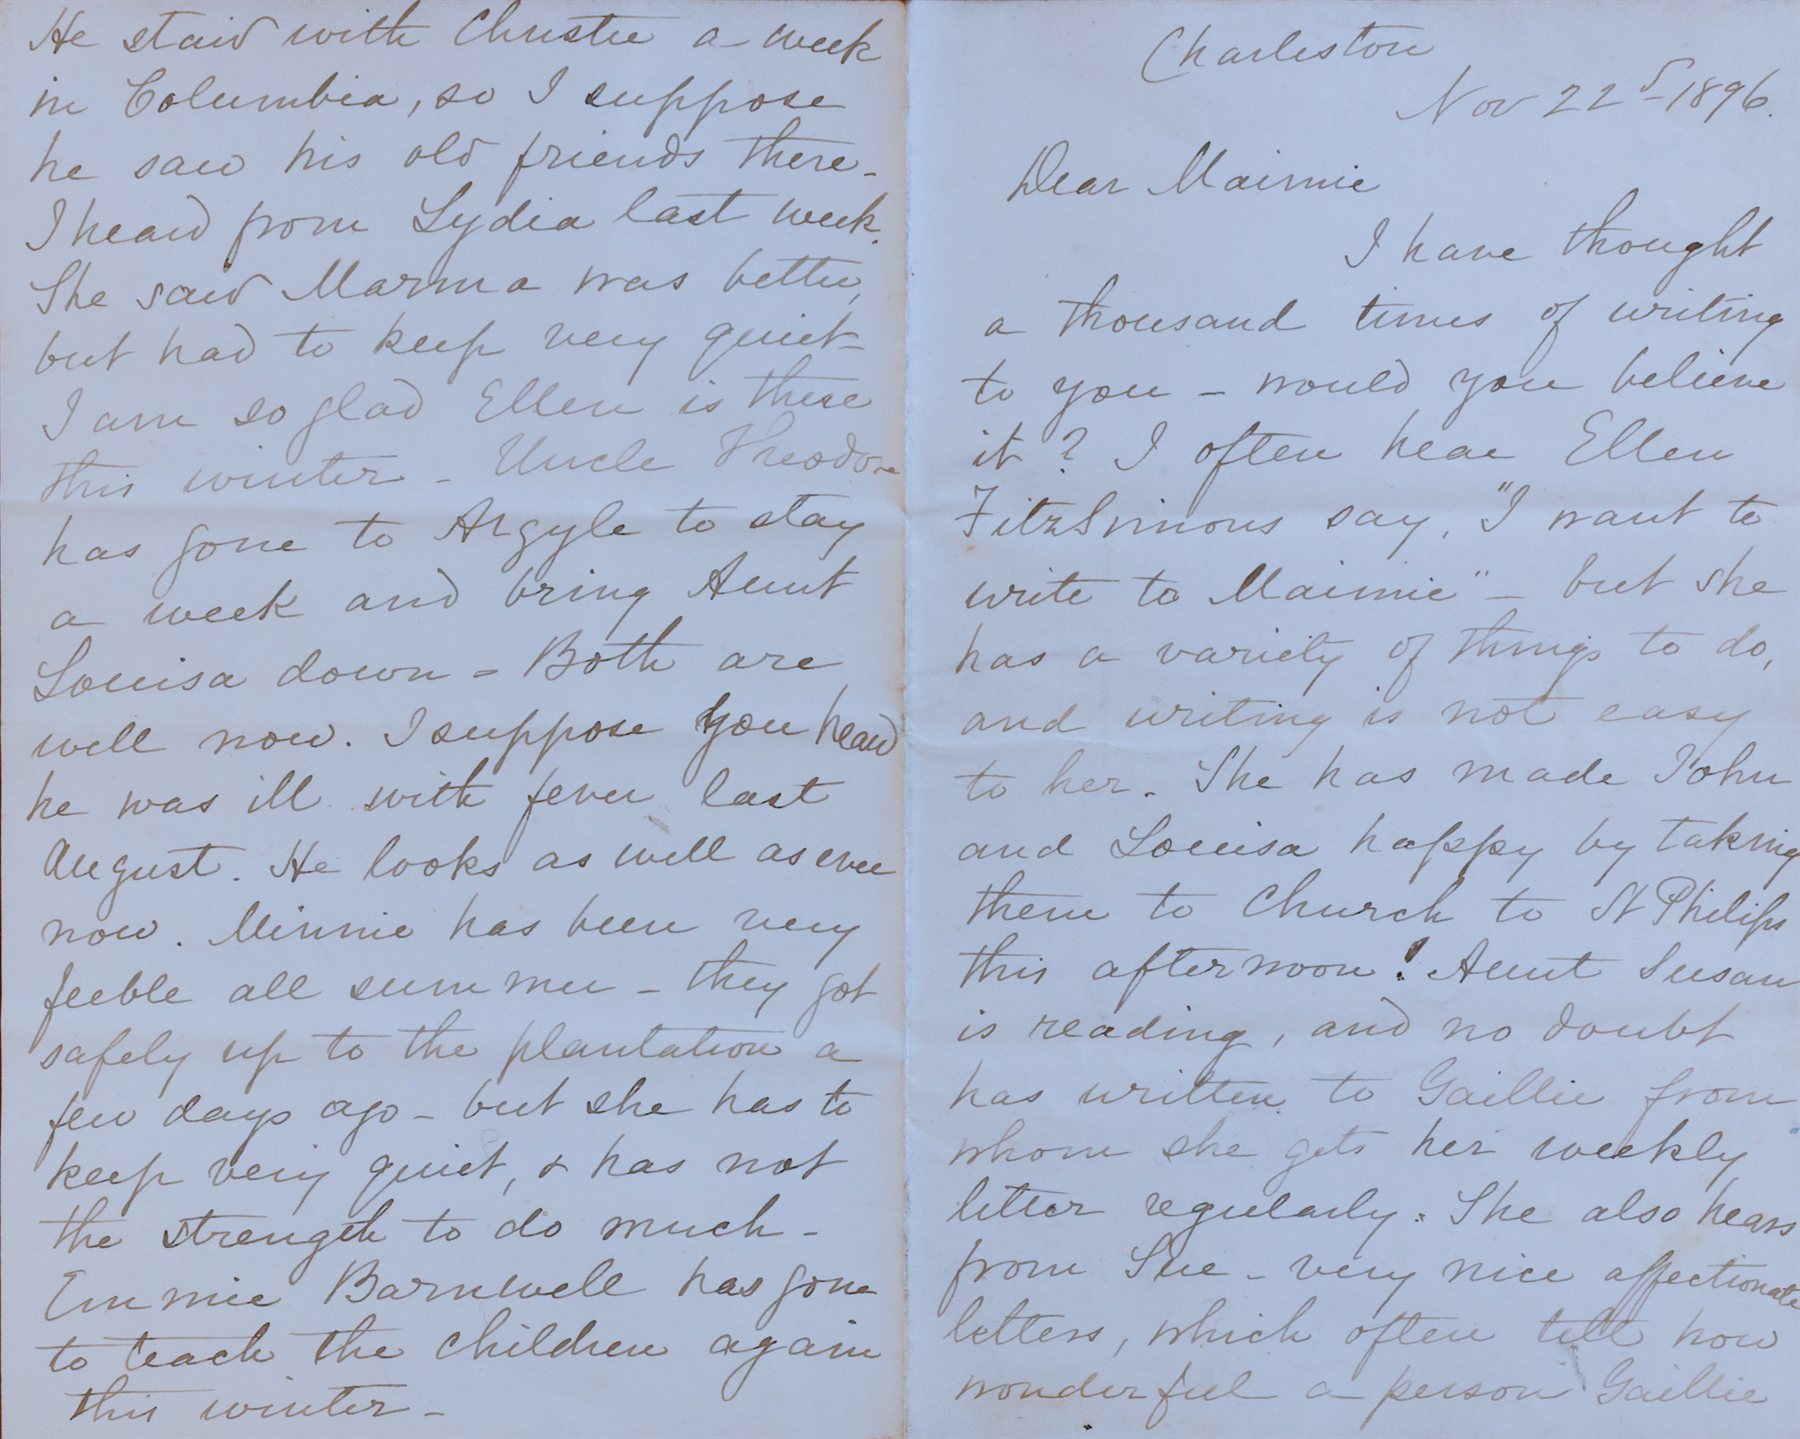 Charleston
Nov 22d - 1896.
Dear Maimie
I have thought
a thousand times of writing
to you - would you believe
it? I often hear Ellen
FitzSimons say, "I want to
write to Maimie" - but she
has a variety of things to do,
and writing is not easy
to her. She has made John
and Louisa happy by taking
them to Church to St Philips
this afternoon! Aunt Susan
is reading, and no doubt
has written to Gaillie from
whom she gets her weekly
letter regularly. She also hears
from Sue - very nice affectionate
letters, which often tell how
wonderful a person Gaillie
He staid with Christie a week
in Columbia, so I suppose
he saw his old friends there -
I heard from Lydia last week.
She said Marma was better,
but had to keep very quiet -
I am so glad Ellen is there
this winter - Uncle Theodore
has gone to Argyle to stay
a week and bring Aunt
Louisa down - Both are
well now. I suppose you heard
he was ill with fever last
August. He looks as well as ever
now. Minnie has been very
feeble all summer - they got
safely up to the plantation a
few days ago - but she has to
keep very quiet, & has not
the strength to do much -
Emmie Barnwell has gone
to teach the children again
this winter -